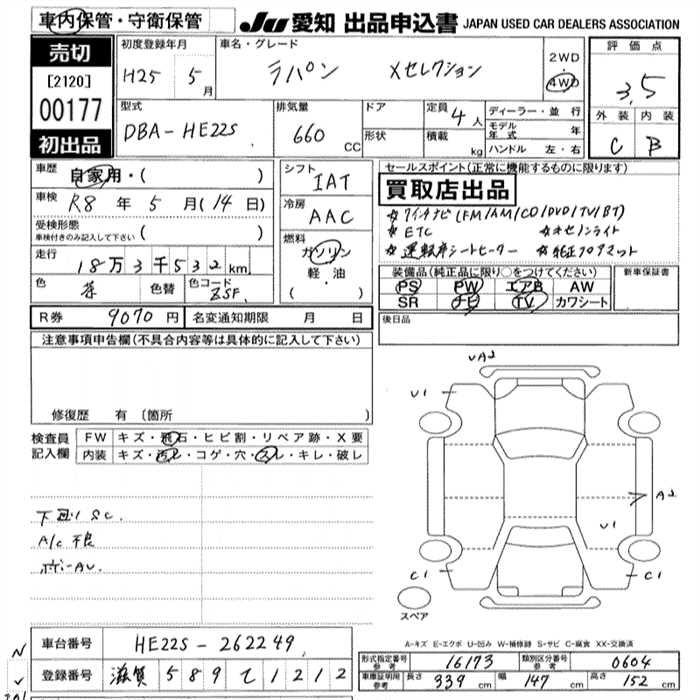 車内保管・守衛保管
JU 愛知 出品申込書 JAPAN USED CAR DEALERS ASSOCIATION
売切
[2120]
00177
初出品
初度登録年月
H25 5月
車名・グレード
ラパン Xセレクション
2WD
4WD
評価点
3.5
外装 内装
C B
型式
DBA-HE22S
排気量
660 CC
ドア
形状
定員 4人
積載 kg
ディーラー・並行
モデル年式 年
ハンドル 左・右
車歴 自家用・( )
車検 R8年 5月(14日)
受検形態
車検付きのみ記入して下さい ( )
走行 18万3千532km
色 茶 色替 色コード ZSF
シフト
IAT
冷房
AAC
燃料
ガソリン
軽・油
( )
セールスポイント(正常に機能するものに限ります)
買取店出品
☆7インチナビ(FM/AM/CD/DVD/TV/BT)
☆ETC ☆キセノンライト
☆運転席シートヒーター ☆純正フロアマット
装備品(純正品に限り○をつけてください)
PS PW エアB AW
SR ナビ TV カワシート
新車保証書
R券 9070円 名変通知期限 月 日
後日品
注意事項申告欄(不具合内容等は具体的に記入して下さい)
修復歴 有 [箇所 ]
検査員記入欄
FW キズ・飛石・ヒビ割・リペア跡・X要
内装 キズ・汚レ・コゲ・穴・スレ・キレ・破レ
下回りSC.
A/C不良
ボデーAU.
UA2
U1
A2
U1
C1
C1
スペア
A-キズ E-エクボ U-凹み W-補修跡 S-サビ C-腐食 XX-交換済
車台番号 HE22S-262249
登録番号 滋賀 589 て 1212
形式指定番号 参考 16173
類別区分番号 参考 0604
車庫証明用 参考 長さ 339cm 幅 147cm 高さ 152cm
N